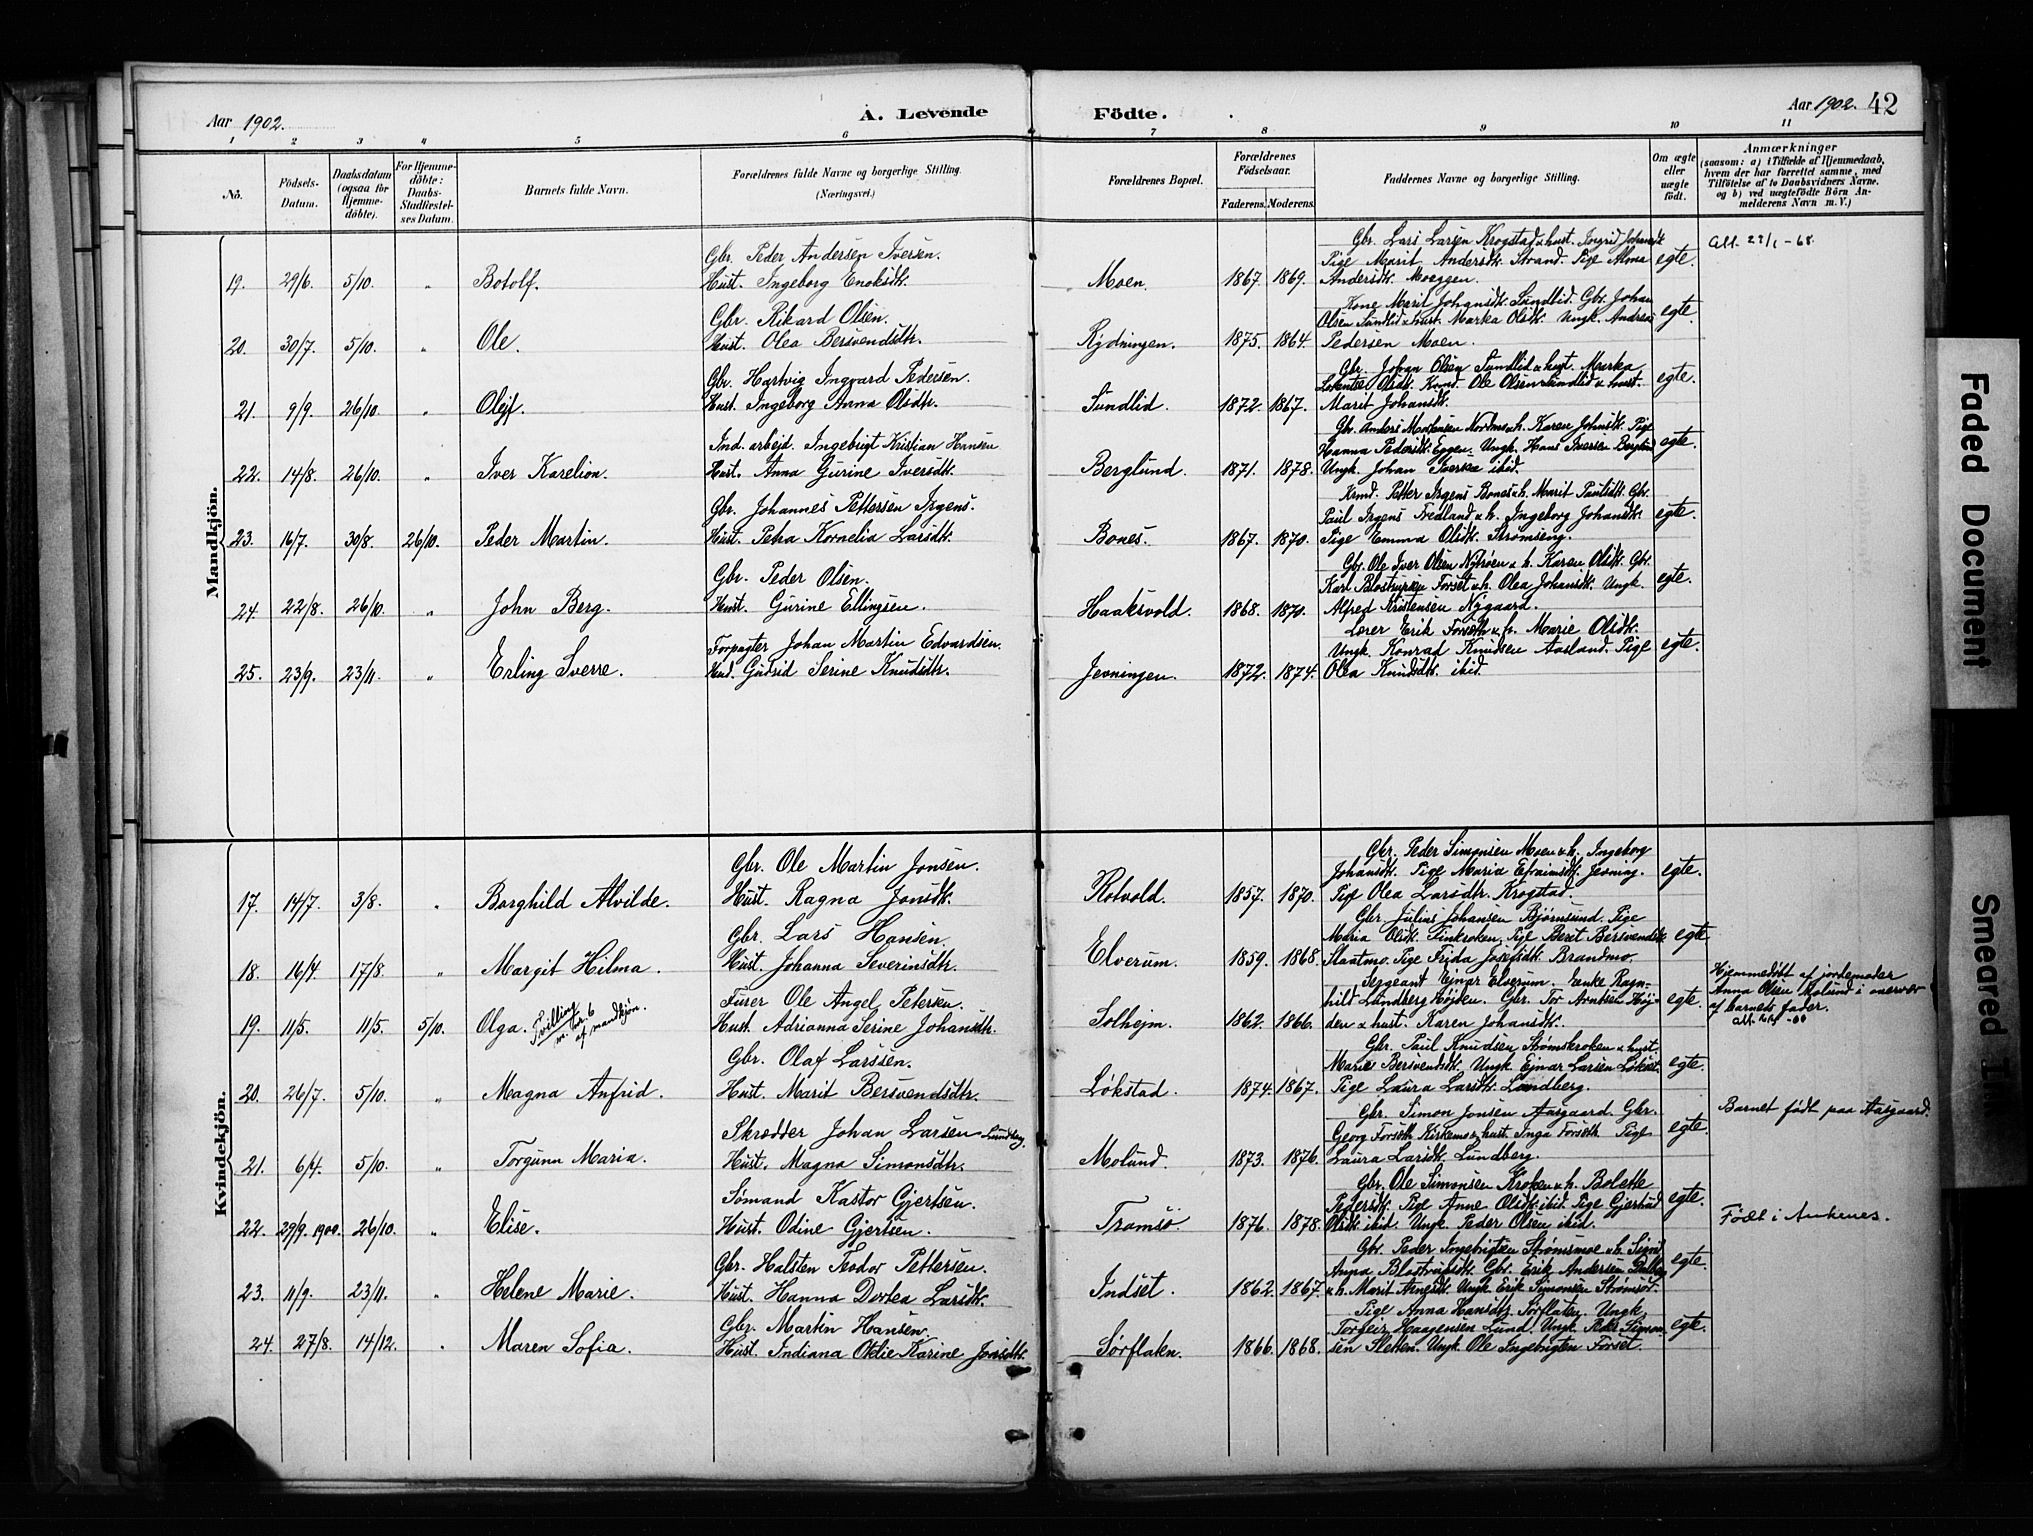 Aar 1902.
A. Levende Födte.
Aar 1902. 42
1 2 3 4 5 6 7 8 9 10 11
No. Födsels-Datum. Daabsdatum (ogsaa for Hjemmedöbte). For Hjemmedöbte: Daabs-Stadfæstelses Datum. Barnets fulde Navn. Forældrenes fulde Navne og borgerlige Stilling. (Næringsvei.) Forældrenes Bopæl. Forældrenes Födselsaar. Faderens. Moderens. Faddernes Navne og borgerlige Stilling. Om ægte eller uægte födt. Anmærkninger (saasom: a) i Tilfælde af Hjemmedaab, hvem der har forrettet samme, med Tilföielse af to Daabsvidners Navne, og b) ved uægtefödte Börn Anmelderens Navn m. V.)
Mandkjön.
Gbr. Lars Larsen Krogstad & hust. Ingrid Johansdt. Att. 22/1-68
Gbr. Peder Andersen Iversen. Pige Marit Andersdt. Strand. Pige Alma egte.
19. 29/6. 5/10. " Botolf. Hust. Ingeborg Enoksdt. Moen. 1867. 1869. Andersdt. Moeggen.
Kone Marit Johansdt. Sundlid. Gbr. Johan
Gbr. Rikard Olsen. Olsen Sundlid & hust. Marka Olsdt. Ungk. Andreas egte.
20. 30/7. 5/10. " Ole. Hust. Olea Bersvendsdtr. Rydningen. 1875. 1864. Pedersen Moen.
Gbr. Johan Olsen Sundlid & hust. Marka
Gbr. Hartvig Ingvard Pedersen. Lorentse Olsdt. Ole Olsen Sundlid & hust. egte.
21. 9/9. 26/10. " Olejf. Hust. Ingeborg Anna Olsdtr. Sundlid. 1872. 1867. Marit Johansdt.
Gbr. Anders Mortensen Nordmo & h. Karen Johnsdt. Pige
Ind. arbejd. Ingebrigt Kristian Hansen Hanna Pedersdt. Eggen. Ungk. Hans Iversen Berglund egte.
22. 14/8. 26/10. " Iver Karelion. Hust. Anna Gurine Iversdt. Berglund. 1871. 1878. Ungk. Johan Iversen ibid.
Petter Irgens Bones & h. Marit Paulsdt. Gbr.
Gbr. Johannes Pettersen Irgens. Paul Irgens Fredland & h. Ingeborg Johansdt. egte.
23. 16/7. 30/8. 26/10. Peder Martin. Hust. Petra Kornelia Larsdt. Bones. 1867. 1870. Pige Emma Olsdt. Strømseng.
Gbr. Ole Iver Olsen Nybrøen & h. Karen Olsdt. Gbr.
Gbr. Peder Olsen. Karl Blostrupsen Forset & h. Olea Johansdt. Ungk. egte.
24. 22/8. 26/10. " John Berg. Hust. Gurine Ellingsen. Haaksvold. 1868. 1870. Alfred Kristensen Nygaard.
Lærer Erik Forseth & h. Marie Olsdt.
Forpagter Johan Martin Edvardsen. Ungk. Konrad Knudsen Aasland. Pige egte.
25. 23/9. 23/11. " Erling Sverre. Hust. Gudrid Serine Knudsdtr. Jevningen. 1872. 1874. Olea Knudsdt. ibid.
Kvindekjön.
Gbr. Peder Simonsen Moen & h. Ingeborg
Gbr. Ole Martin Jonsen. Johansdt. Pige Maria Efraimsdt. Jevning. egte.
17. 14/7. 3/8. " Borghild Alvilde. Hust. Ragna Jonsdt. Rotvold. 1857. 1870. Pige Olea Larsdtr. Krogstad.
Gbr. Julius Johansen Bjørnsund. Pige
Gbr. Lars Hansen. Maria Olsdt. Finkroken. Pige Berit Bersvendsdt. egte
18. 16/4. 17/8. " Margit Hilma. Hust. Johanna Severinsdtr. Elverum. 1859. 1868. Slaatmo. Pige Frida Josefsdt. Brandmo.
Serggeant Ejnar Elverum. Enke Ragn- Hjemmedøbt af jordemoder
Furer Ole Angel Petersen. hild Lundberg Højden. Gbr. Tor Arntsen Høj- egte. Anna Olsen Molund i nærvær
19. 11/5. 11/5. 5/10. Olga. Tvilling m. nr. 6 af mandkjön. Hust. Adrianna Serine Johansdtr. Solhejm. 1862. 1866. den & hust. Karen Johansdt. af barnets fader.
Gbr. Paul Knudsen Strømskroken & hust.
Gbr. Olaf Larssen. Marie Bersvendsdt. Ungk. Ejnar Larsen Løkstad. egte.
20. 26/7. 5/10. " Magna Anfrid. Hust. Marit Bersvendsdtr. Løkstad. 1874. 1867. Pige Laura Larsdt. Lundberg.
Gbr. Simon Jonsen Aasgaard. Gbr. Barnet født paa Aasgaard.
Skrædder Johan Larsen Lundberg. Georg Forseth Kirkemo & hust. Inga Forseth Pige egte.
21. 6/4. 5/10. " Torgunn Maria. Hust. Magna Simonsdtr. Molund. 1873. 1876. Laura Larsdt. Lundberg.
Gbr. Ole Simonsen Kroken & h. Bolette
Sømand Kastor Gjertsen. Pedersdt. Pige Anne Olsdt. ibid. Pige Gjertrud egte.
22. 29/9. 1900. 26/10. " Elise. Hust. Odine Gjertsen. Tromsö. 1876. 1878. Olsdt. ibid. Ungk. Peder Olsen ibid. Født i Ankenes.
Gbr. Peder Ingebrigtsen Strømsmoe & h. Sigrid
Gbr. Halsten Teodor Pettersen. Anna Blostrupsdt. Gbr. Erik Andersen egte.
23. 11/9. 23/11. " Helene Marie. Hust. Hanna Dortea Larsdt. Indset. 1862. 1867. & h. Marit Arnesdt. Ungk. Erik Simonsen Strømsør.
Pige Anna Hansdt. Sørflaten. Ungk.
Gbr. Martin Hansen. Torgeir Haagensen Lund. Ungk. Peder Simon- egte.
24. 27/8. 14/12. " Maren Sofia. Hust. Indiana Otdie Karine Jonsdt. Sørflaten. 1866. 1868. sen Sletten. Ungk. Ole Ingebrigtsen Forset.
Faded Document
Smeared I